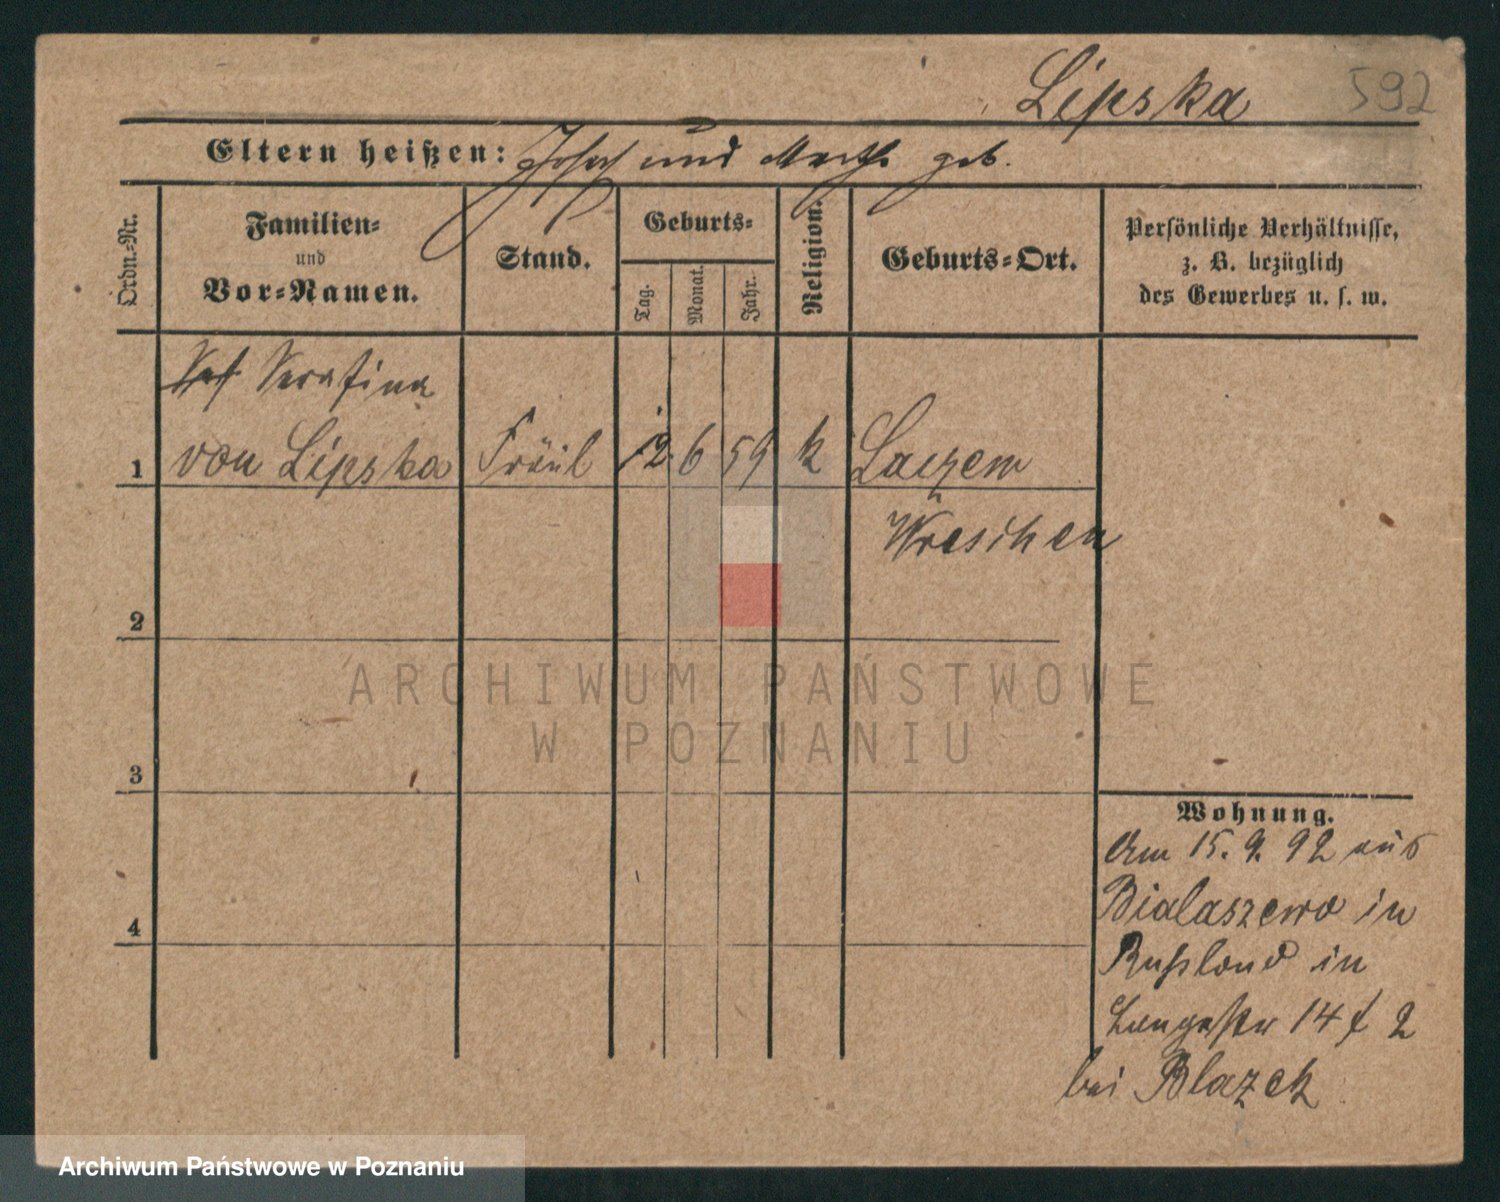 Lipska 592
Eltern heißen: Joseph und Marthe geb.
Ordn.-Nr.
Familien-
und
Vor-Namen.
Stand.
Geburts-
Tag.
Monat.
Jahr.
Religion.
Geburts-Ort.
Persönliche Verhältnisse,
z. B. bezüglich
des Gewerbes u. s. w.
Serafina
1 von Lipska Fräul 12 6 59 k
Wreschen
2
3
4
Wohnung.
Am 15. 9. 92 aus
Bialaszewo in
Rußland in
Langestr 14 f 2
bei Blazek
ARCHIWUM PAŃSTWOWE
W POZNANIU
Archiwum Państwowe w Poznaniu